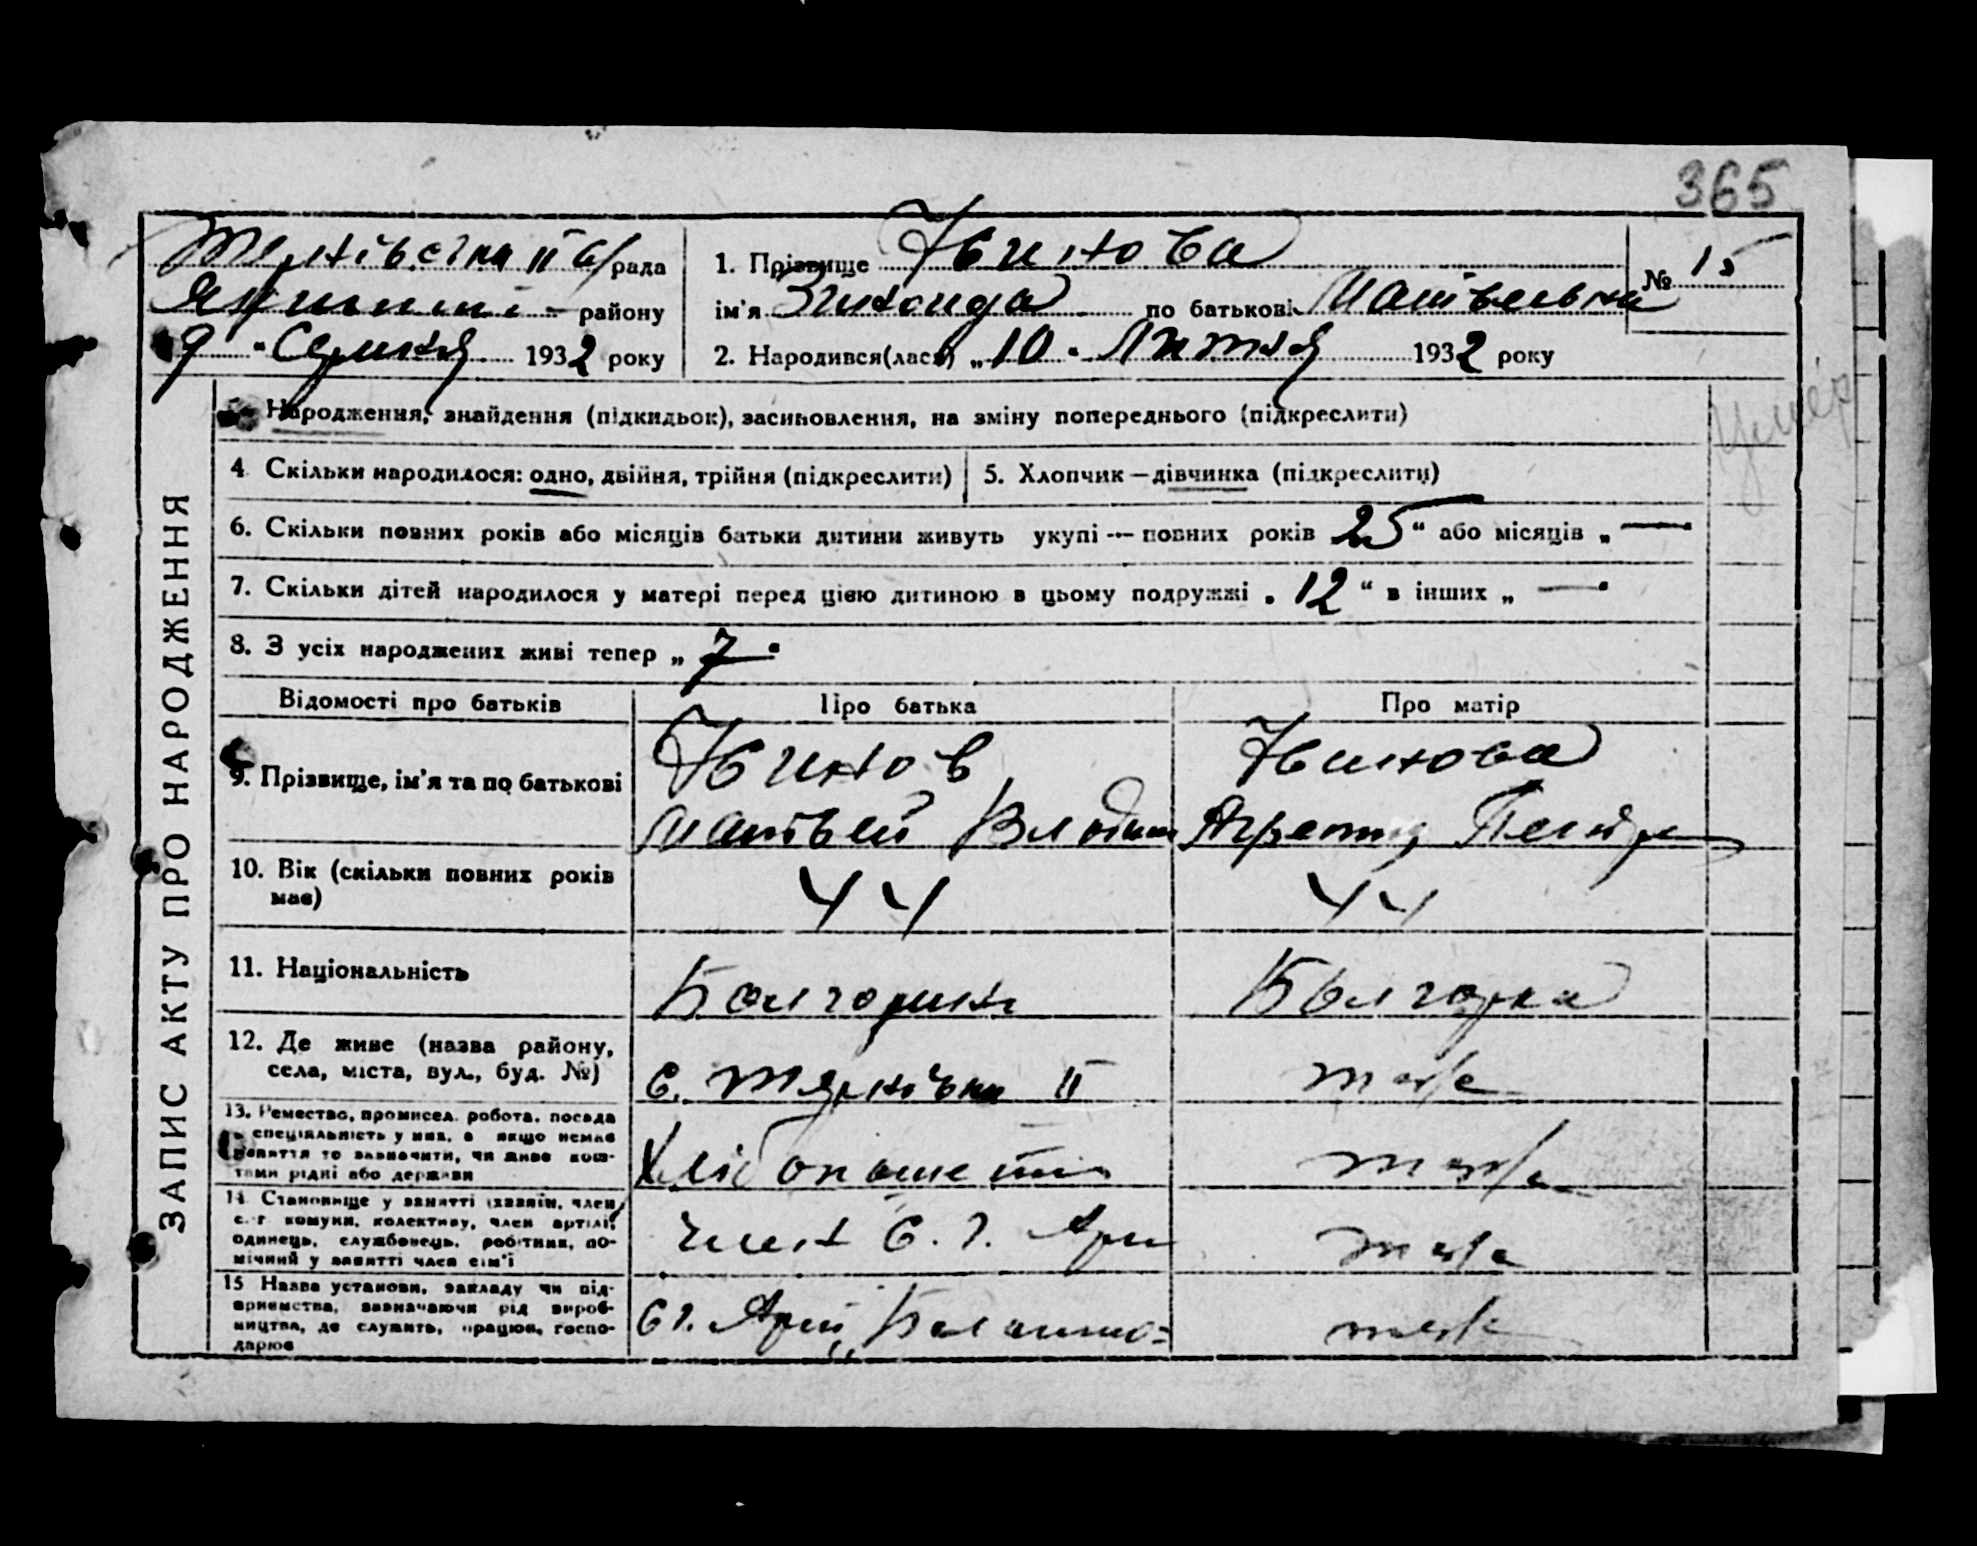 365
Тернівська II с/рада
району
9 " Серпня 1932 року
1. Прізвище Жвинова
№ 15
ім'я Зинаида по батькові Матвеевна
2. Народився(лася) „ 10 " Липня 1932 року
Умер
Народження, знайдення (підкидьок), засиновлення, на зміну попереднього (підкреслити)
4 Скільки народилося: одно, двійня, трійня (підкреслити)
5. Хлопчик — дівчинка (підкреслити)
6. Скільки повних років або місяців батьки дитини живуть укупі — повних років 25 " або місяців „ —
7. Скільки дітей народилося у матері перед цією дитиною в цьому подружжі „ 12 " в інших „ — "
8. З усіх народжених живі тепер „ 7 "
Відомості про батьків Про батька Про матір
9. Прізвище, ім'я та по батькові
Жвинов
Матвей Владим
Жвинова
10. Вік (скільки повних років
має)
44
44
11. Національність
Болгарин
Болгарка
12. Де живе (назва району,
села, міста, вул., буд. № )
с. Тернівка II
тоже
13. Ремество, промисел, робота, посада
спеціяльність у них, а якщо немає
заняття то зазначити, чи живе кош-
тами рідні або держави
тоже
14. Становище у занятті (хазяїн, член
с.-г комуни, колективу, член артілі,
одинець, службовець, робітник, по-
мічний у занятті член сім'ї
член с. г. Арт
тоже
15 Назва установи, закладу чи під-
приємства, зазначаючи рід вироб-
ництва, де служить, працює, госпо-
дарює
сг. Арті
тоже
ЗАПИС АКТУ ПРО НАРОДЖЕННЯ